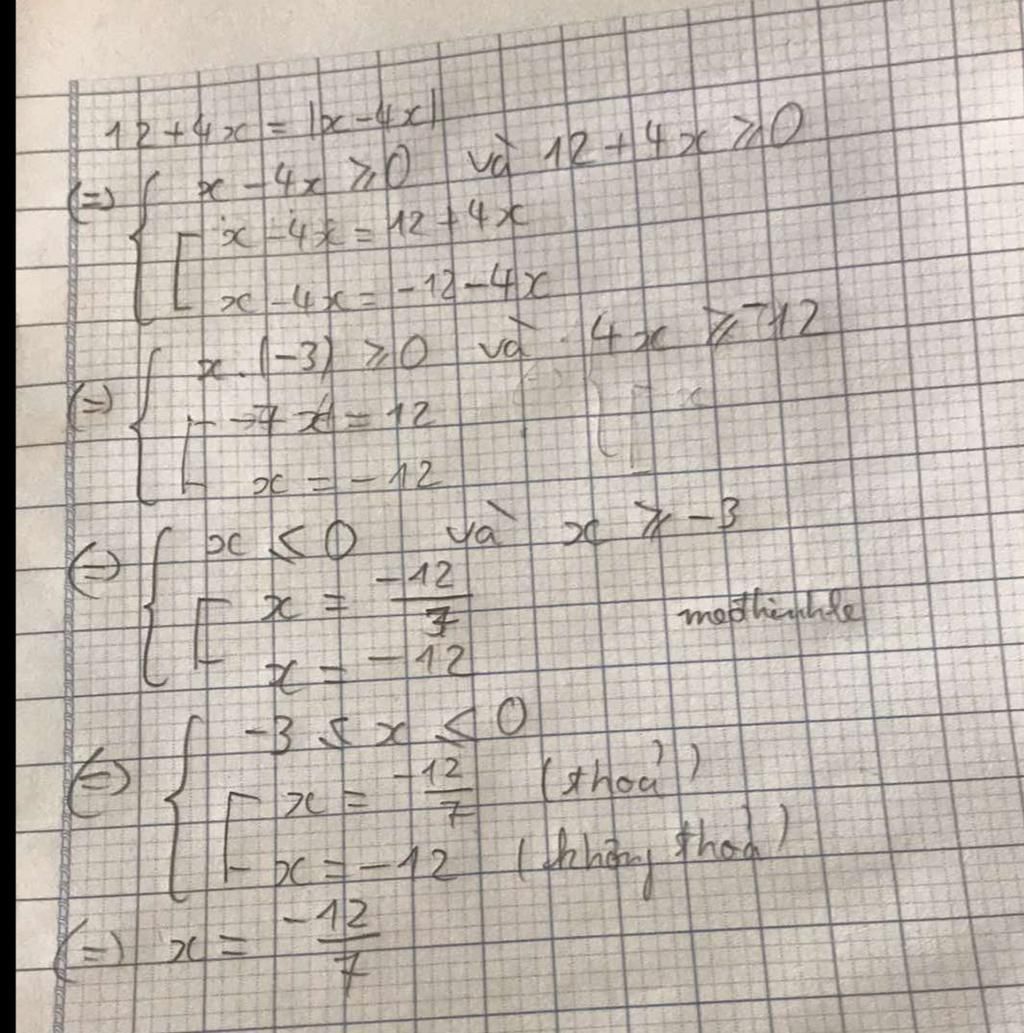 12 + 4x = |x - 4x|
(=) { x - 4x ⩾ 0 và 12 + 4x ⩾ 0
[ x - 4x = 12 + 4x
x - 4x = -12 - 4x
(=) { x. (-3) ⩾ 0 và 4x ⩾ -12
[ -7x = 12
x = -12
(=) { x ⩽ 0 và x ⩾ -3
[ x = -12/7
x = -12
(=) { -3 ⩽ x ⩽ 0
[ x = -12/7 (thoả)
x = -12 (không thoả)
(=) x = -12/7